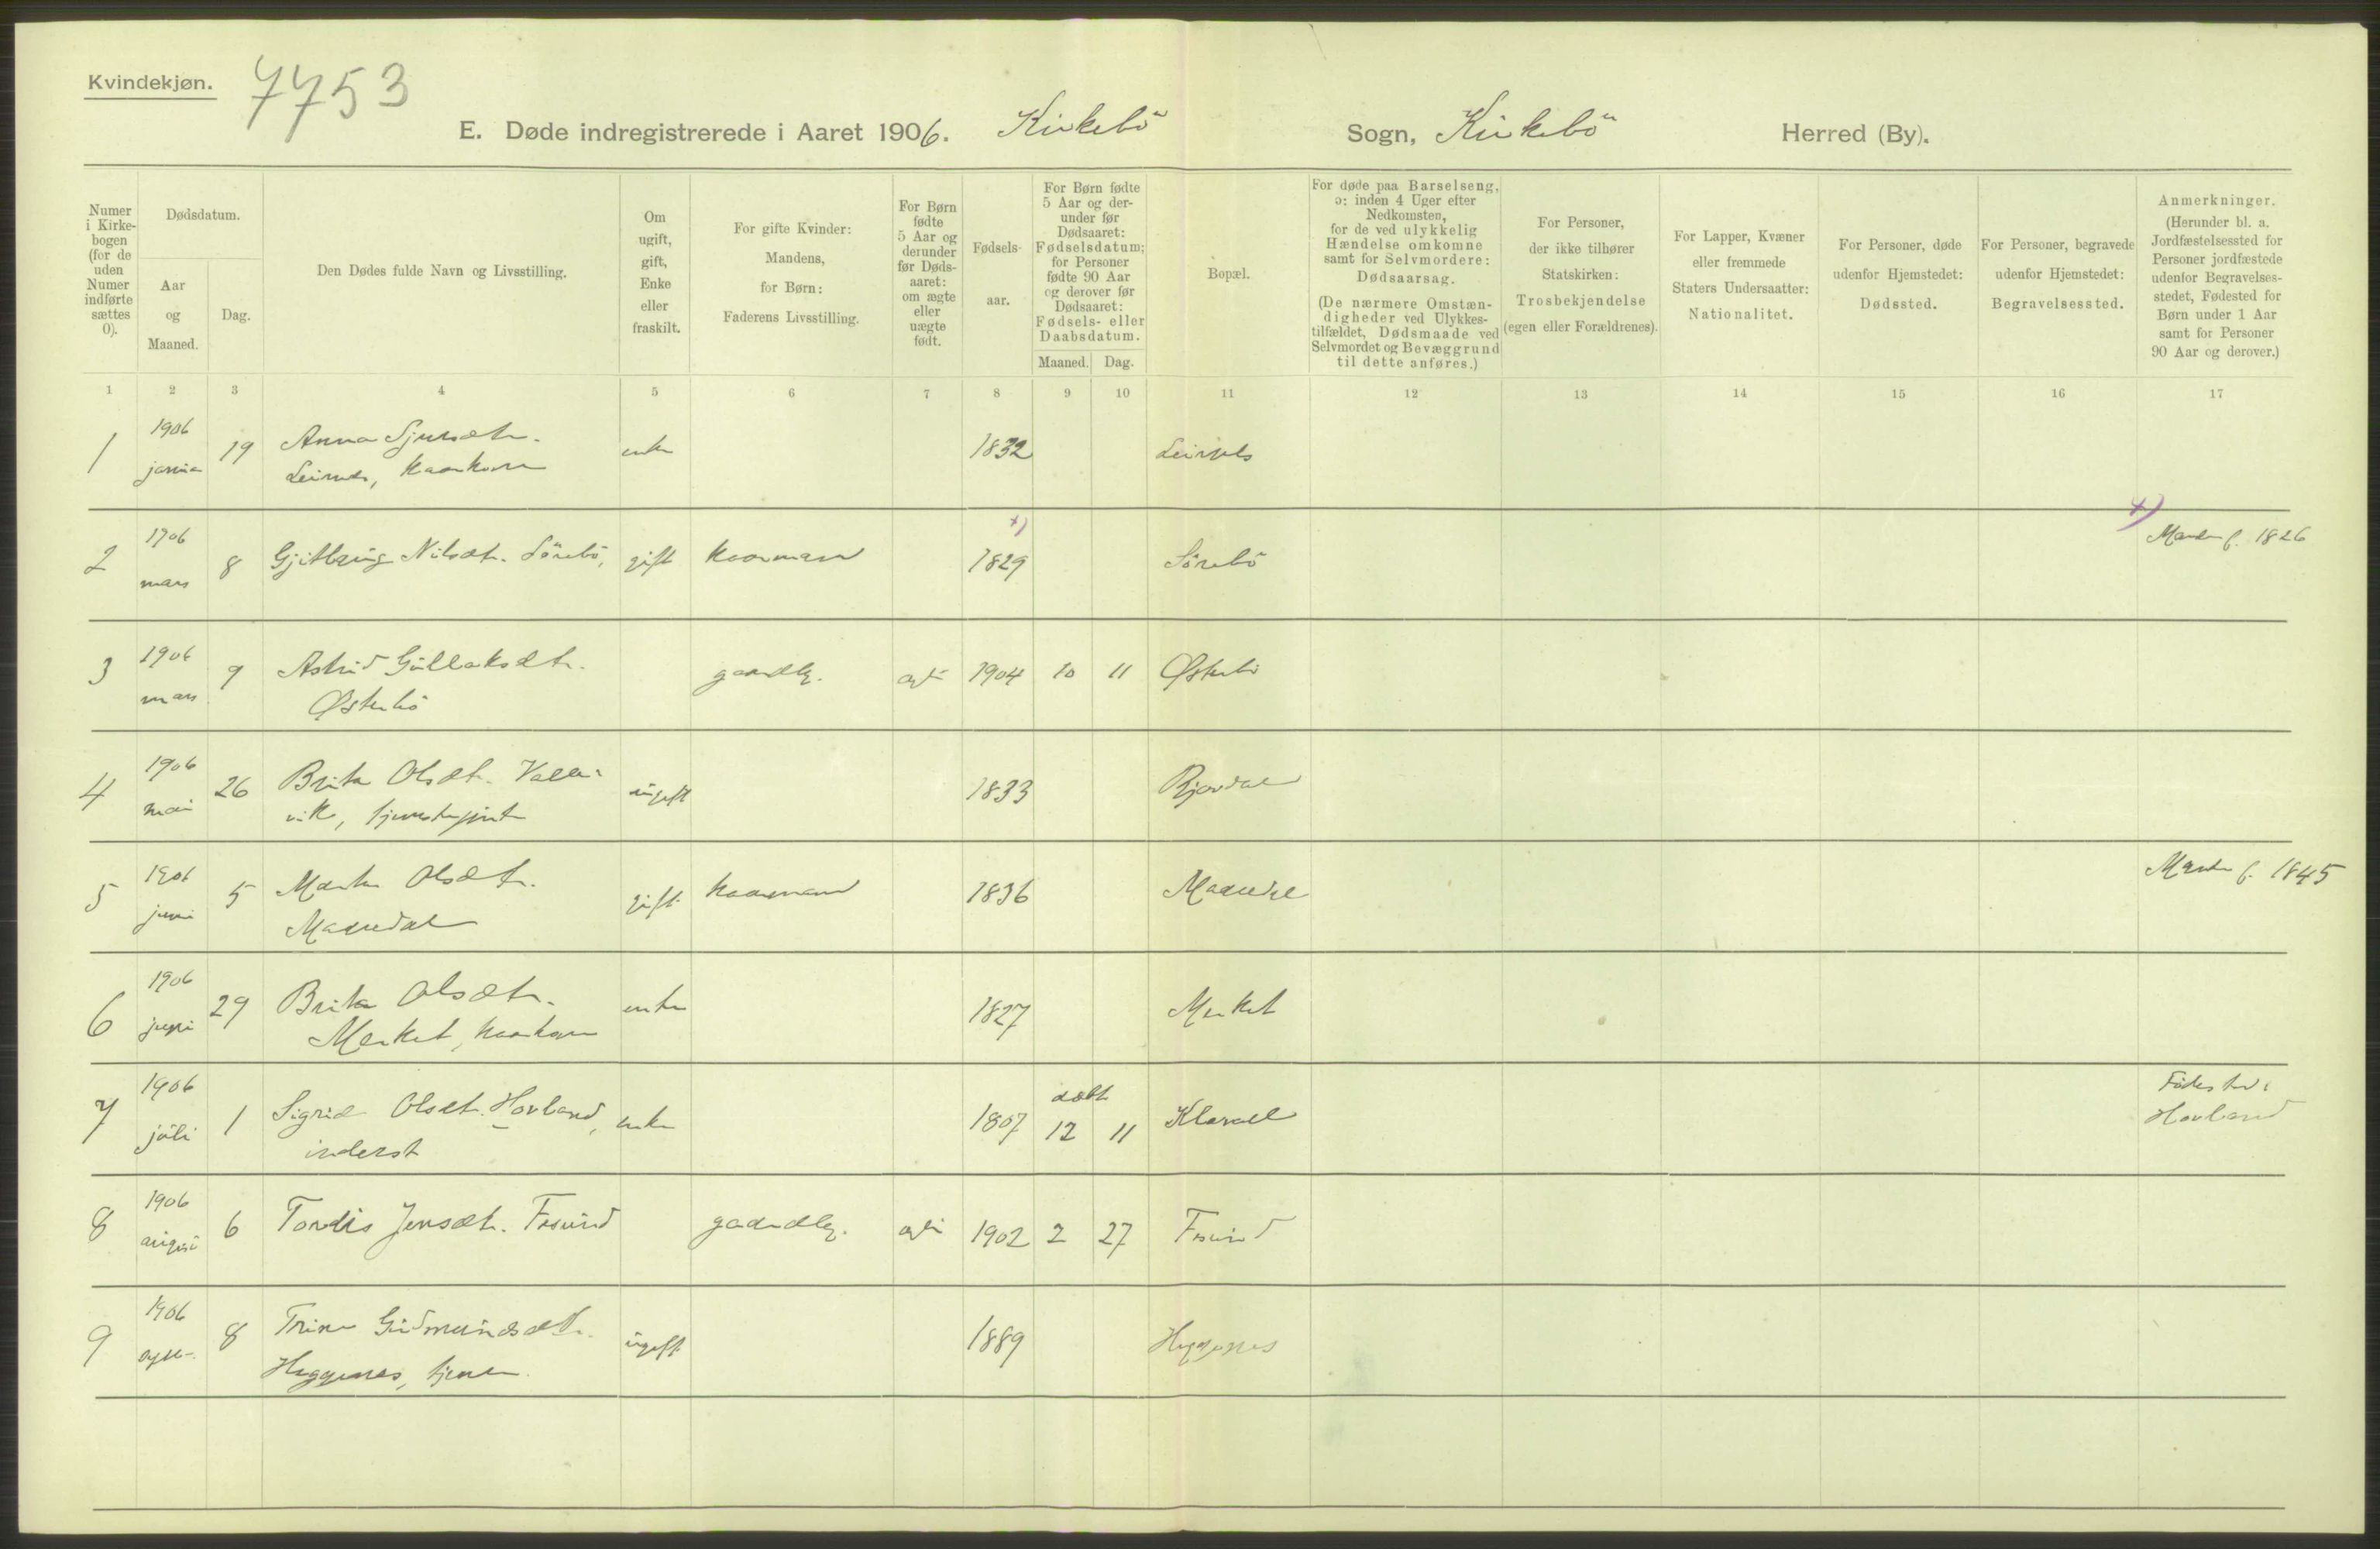 Kvindekjøn.
7753
E. Døde indregistrerede i Aaret 1906. Kirkebö Sogn, Kirkebö Herred (By).
Numer i Kirkebogen (for de uden Numer indførte sættes 0).
Dødsdatum.
Aar og Maaned.
Dag.
Den Dødes fulde Navn og Livsstilling.
Om ugift, gift, Enke eller fraskilt.
For gifte Kvinder: Mandens, for Børn: Faderens Livsstilling.
For Børn fødte 5 Aar og derunder før Dødsaaret: om ægte eller uægte født.
Fødselsaar.
For Børn fødte 5 Aar og derunder før Dødsaaret: Fødselsdatum; for Personer fødte 90 Aar og derover før Dødsaaret: Fødsels- eller Daabsdatum.
Maaned. Dag.
Bopæl.
For døde paa Barselseng, ɔ: inden 4 Uger efter Nedkomsten, for de ved ulykkelig Hændelse omkomne samt for Selvmordere: Dødsaarsag.
(De nærmere Omstændigheder ved Ulykkestilfældet, Dødsmaade ved Selvmordet og Bevæggrund til dette anføres.)
For Personer, der ikke tilhører Statskirken: Trosbekjendelse (egen eller Forældrenes).
For Lapper, Kvæner eller fremmede Staters Undersaatter: Nationalitet.
For Personer, døde udenfor Hjemstedet: Dødssted.
For Personer, begravede udenfor Hjemstedet: Begravelsessted.
Anmerkninger.
(Herunder bl. a. Jordfæstelsessted for Personer jordfæstede udenfor Begravelsesstedet, Fødested for Børn under 1 Aar samt for Personer 90 Aar og derover.)
1 2 3 4 5 6 7 8 9 10 11 12 13 14 15 16 17
1 1906 19 Anna Sjursdtr. enke 1832
2 1906 mars 8 Nilsdtr. Sörebö, gift kaarmand 1829 Sörebö f. 1826
3 1906 mars 9 Astrid Gullaksdtr. gaardbr. 1904 10 11 Østerbö
Østerbö
4 1906 mai 26 Brita Olsdtr. ugift 1833
5 1906 juni 5 Olsdtr. gift kaarmand 1836 f. 1845
6 1906 juni 29 Brita Olsdtr. enke 1827 Merket
Merket, kaarkone
7 1906 juli 1 Sigrid Olsdtr. Hovland, enke 1807 döbt 12 11
inderst Hovland
8 1906 august 6 Tordis Jensdtr. gaardbr. 1902 2 27
9 1906 8 Gudmundsdtr. ugift 1889 Heggenes
Heggenes,